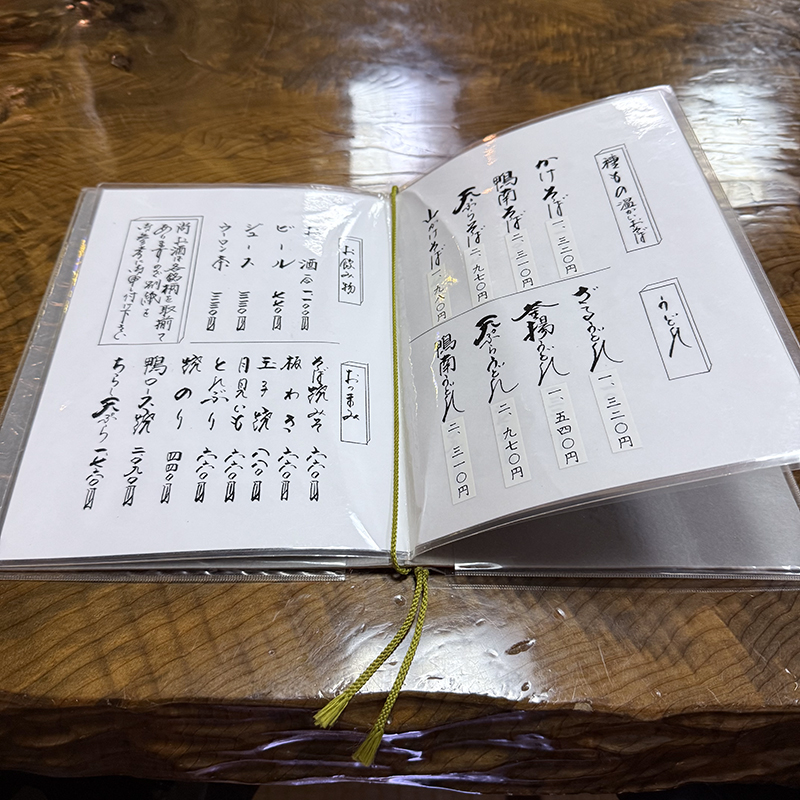 種もの 温かいおそば
かけそば 一、三二〇円
鴨南そば 二、三一〇円
天ぷらそば 二、九七〇円
山かけそば 一、九八〇円
うどん
ざるうどん 一、三二〇円
釜揚うどん 一、五四〇円
天ぷらうどん 二、九七〇円
鴨南うどん 二、三一〇円
お飲み物
お酒
ビール 七七〇円
ジュース 三三〇円
ウーロン茶 三三〇円
尚お酒は各銘柄を取揃て
ありますので別紙を
おつまみ
そば焼みそ 六六〇円
板わさ 六六〇円
玉子焼
月見いも 六六〇円
とんぶり 六六〇円
焼のり 四四〇円
鴨ロース焼 二〇九〇円
ちらし天ぷら 一七六〇円